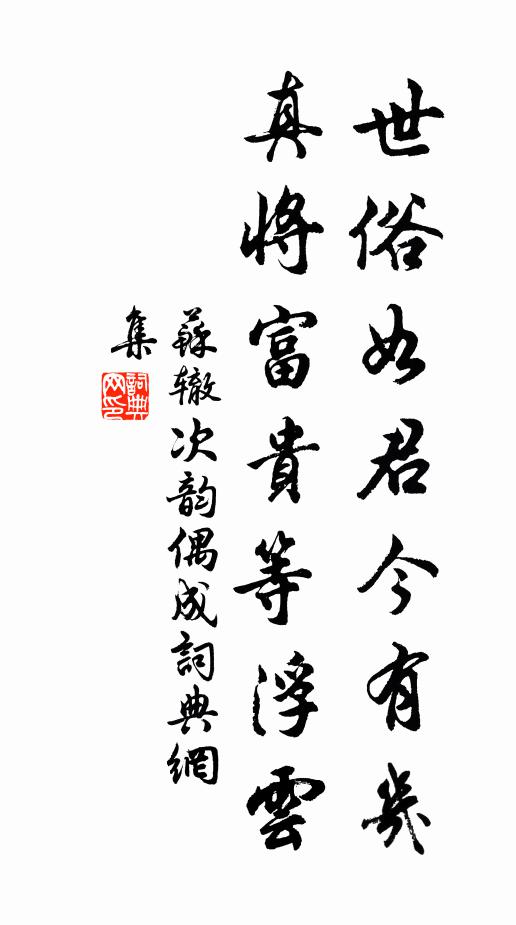 世俗如君今有幾
真將富貴等浮雲
蘇辙次韵偶成詞典網
集
詞典
网印